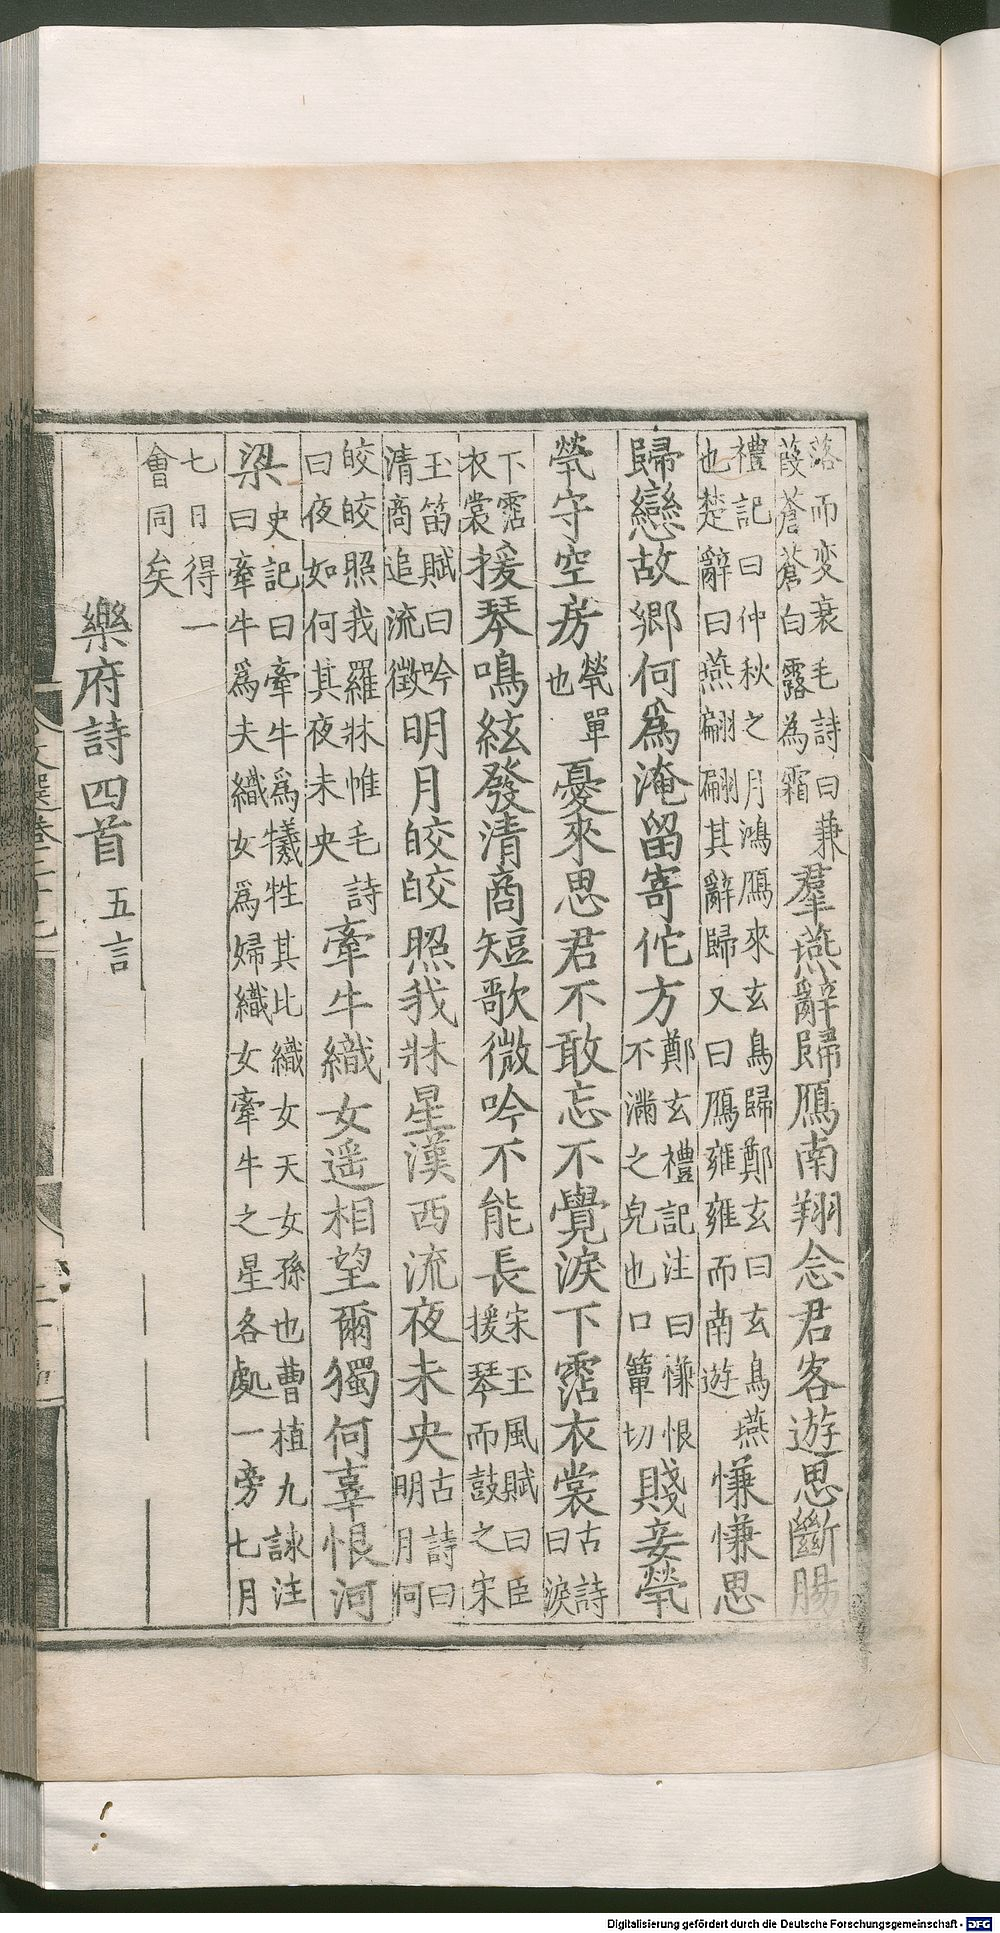 落而变衰毛詩曰兼
葭蒼蒼白露為霜
羣燕辭歸鴈南翔念君客遊思斷腸
禮記曰仲秋之月鴻鴈來玄鳥歸鄭玄曰玄鳥燕
也楚辭曰燕翩翩其辭歸又曰鴈雍雍而南遊
慊慊思
歸戀故鄉何爲淹留寄佗方
鄭玄禮記注曰慊恨
不滿之皃也口簟切
賤妾煢
煢守空房
煢單
也
憂來思君不敢忘不覺淚下霑衣裳
古詩
曰淚
下霑
衣裳
援琴鳴絃發清商短歌微吟不能長
宋玉風賦曰臣
援琴而鼓之宋
玉笛賦曰吟
清商追流徵
明月皎皎照我牀星漢西流夜未央
古詩曰
明月何
皎皎照我羅牀帷毛詩
曰夜如何其夜未央
牽牛織女遥相望爾獨何辜恨河
梁
史記曰牽牛爲犧牲其比織女天女孫也曹植九詠注
曰牽牛爲夫織女爲婦織女牽牛之星各處一旁七月
七日得一
會同矣
樂府詩四首
五言
Digitalisierung gefördert durch die Deutsche Forschungsgemeinschaft - DFG